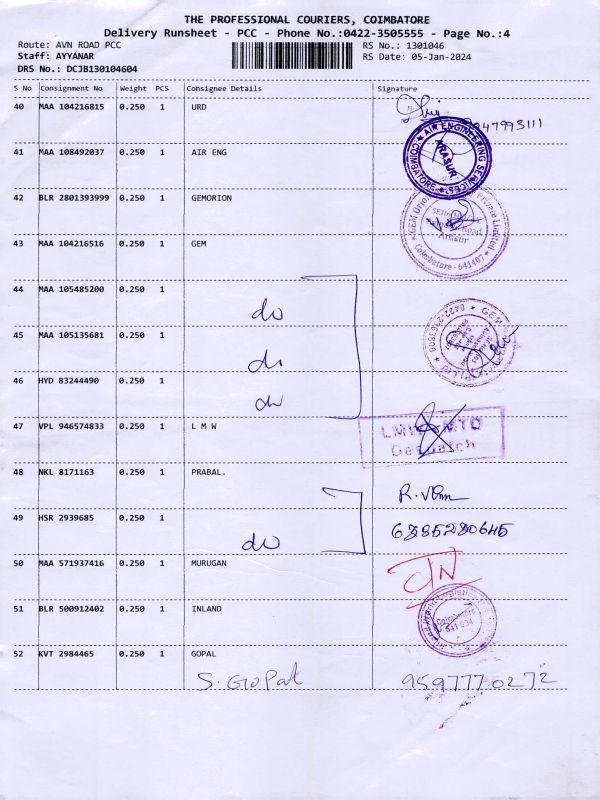 THE PROFESSIONAL COURIERS, COIMBATORE
Delivery Runsheet - PCC - Phone No.:0422-3505555 - Page No.:4
Route: AVN ROAD PCC RS No.: 1301046
Staff: AYYANAR RS Date: 05-Jan-2024
DRS No.: DCJB130104604
S No Consignment No Weight PCS Consignee Details Signature
40 MAA 104216815 0.250 1 URD
41 MAA 108492037 0.250 1 AIR ENG
AIR ENGINEERING SERVICES
ARASUR
COIMBATORE
42 BLR 2801393999 0.250 1 GEMORION
Private Limited
Arasur
Coimbatore - 641407
43 MAA 104216516 0.250 1 GEM
44 MAA 105485200 0.250 1
do
45 MAA 105135681 0.250 1
do
46 HYD 83244490 0.250 1
do
47 VPL 946574833 0.250 1 L M W
48 NKL 8171163 0.250 1 PRABAL.
49 HSR 2939685 0.250 1
do
50 MAA 571937416 0.250 1 MURUGAN
51 BLR 500912402 0.250 1 INLAND
Coimbatore
641 034
52 KVT 2984465 0.250 1 GOPAL
S. GOPAL 9597770272